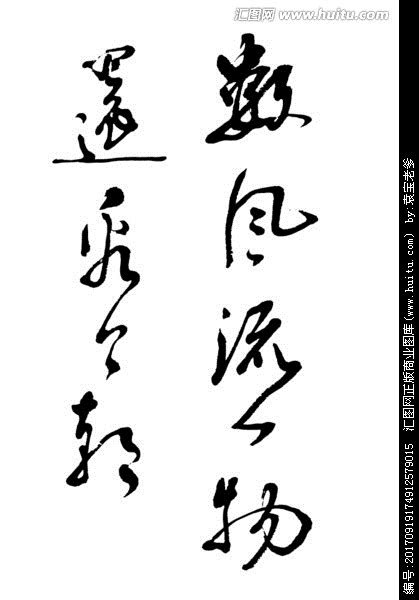 汇图网
www.huitu.com
数风流人物
还看今朝
编号:20170919174912579015 汇图网正版商业图库(www.huitu.com) by:袁宝老爹